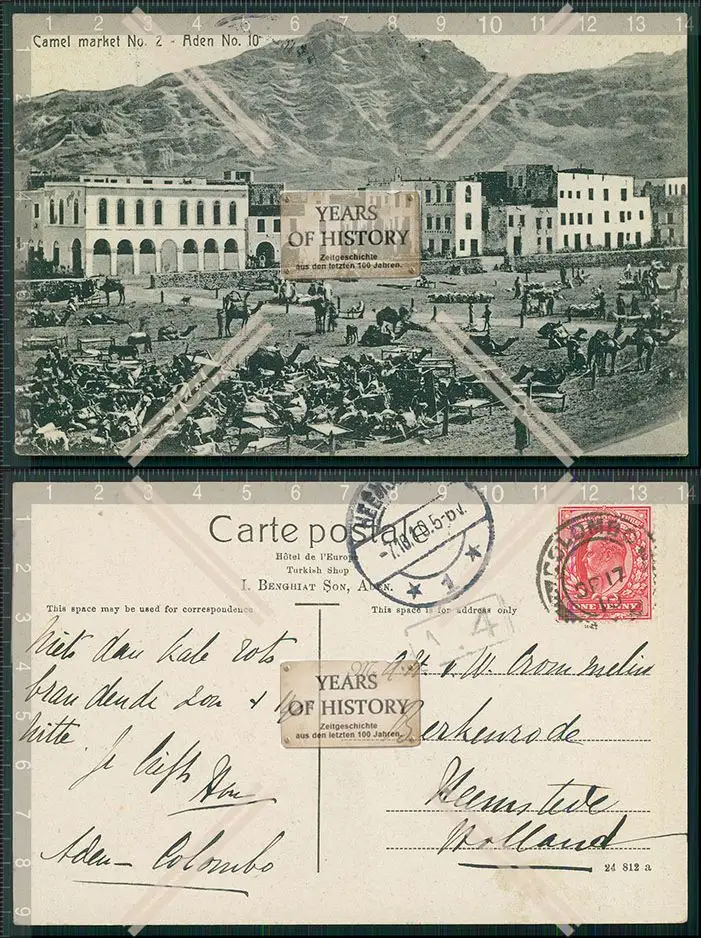 Camel market No. 2 - Aden No. 10
YEARS
OF HISTORY
Zeitgeschichte
aus den letzten 100 Jahren.
Carte postale
Hôtel de l'Europe
Turkish Shop
I. BENGHIAT SON, ADEN.
This space may be used for correspondence
This space is for address only
Niets dan kale rots
brandende zon +
hitte.
Je liefh
Aden - Colombo
YEARS
OF HISTORY
Zeitgeschichte
aus den letzten 100 Jahren.
v. W. Crommelin
Berkenrode
Heemstede
Holland
24 812 a
COLOMBO
SP 17
ONE PENNY
5-6 N.V.
1